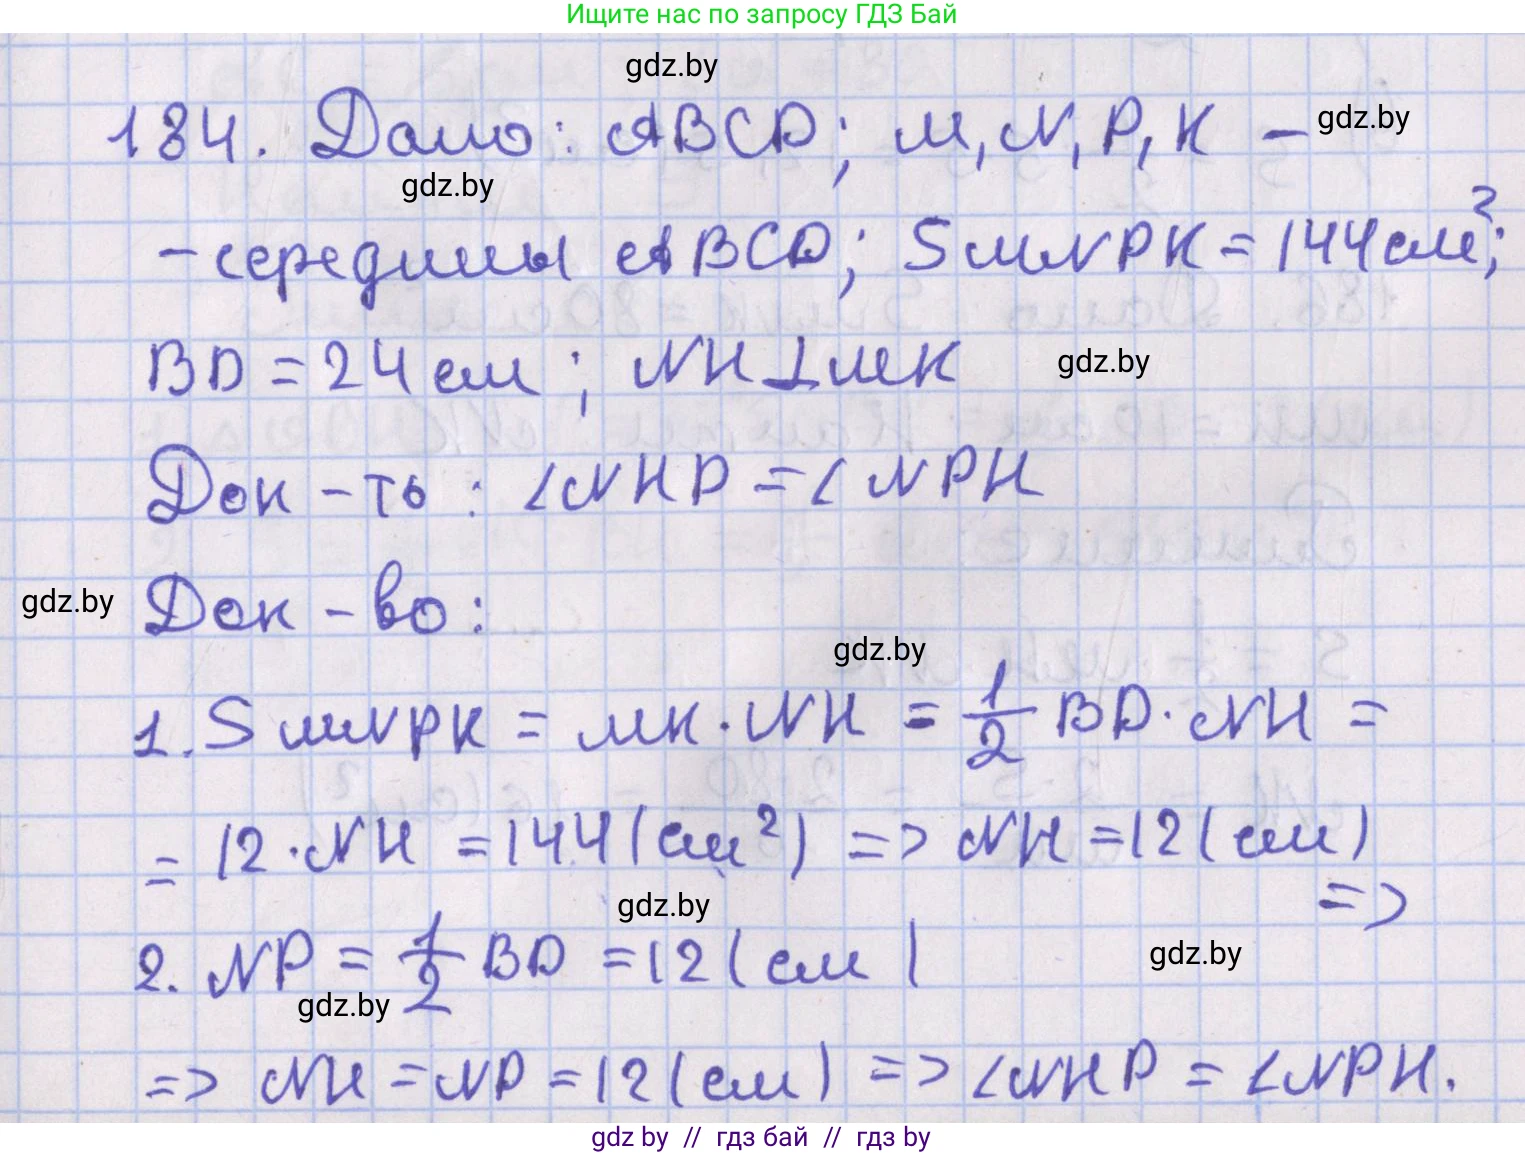 Ищите нас по запросу ГДЗ Бай
gdz.by
184. Дано: ABCD; M, N, P, K –
gdz.by
gdz.by
– середины ABCD; SMNPK = 144 см²;
BD = 24 см; NH ⊥ MK
gdz.by
Док-ть: ∠NHP = ∠NPH
Док-во:
gdz.by
gdz.by
1. SMNPK = MK · NH = 1/2 BD · NH =
= 12 · NH = 144 (см²) => NH = 12 (см)
=>
gdz.by
2. NP = 1/2 BD = 12 (см)
gdz.by
gdz.by
=> NH = NP = 12 (см) => ∠NHP = ∠NPH.
gdz by // гдз бай // гдз by